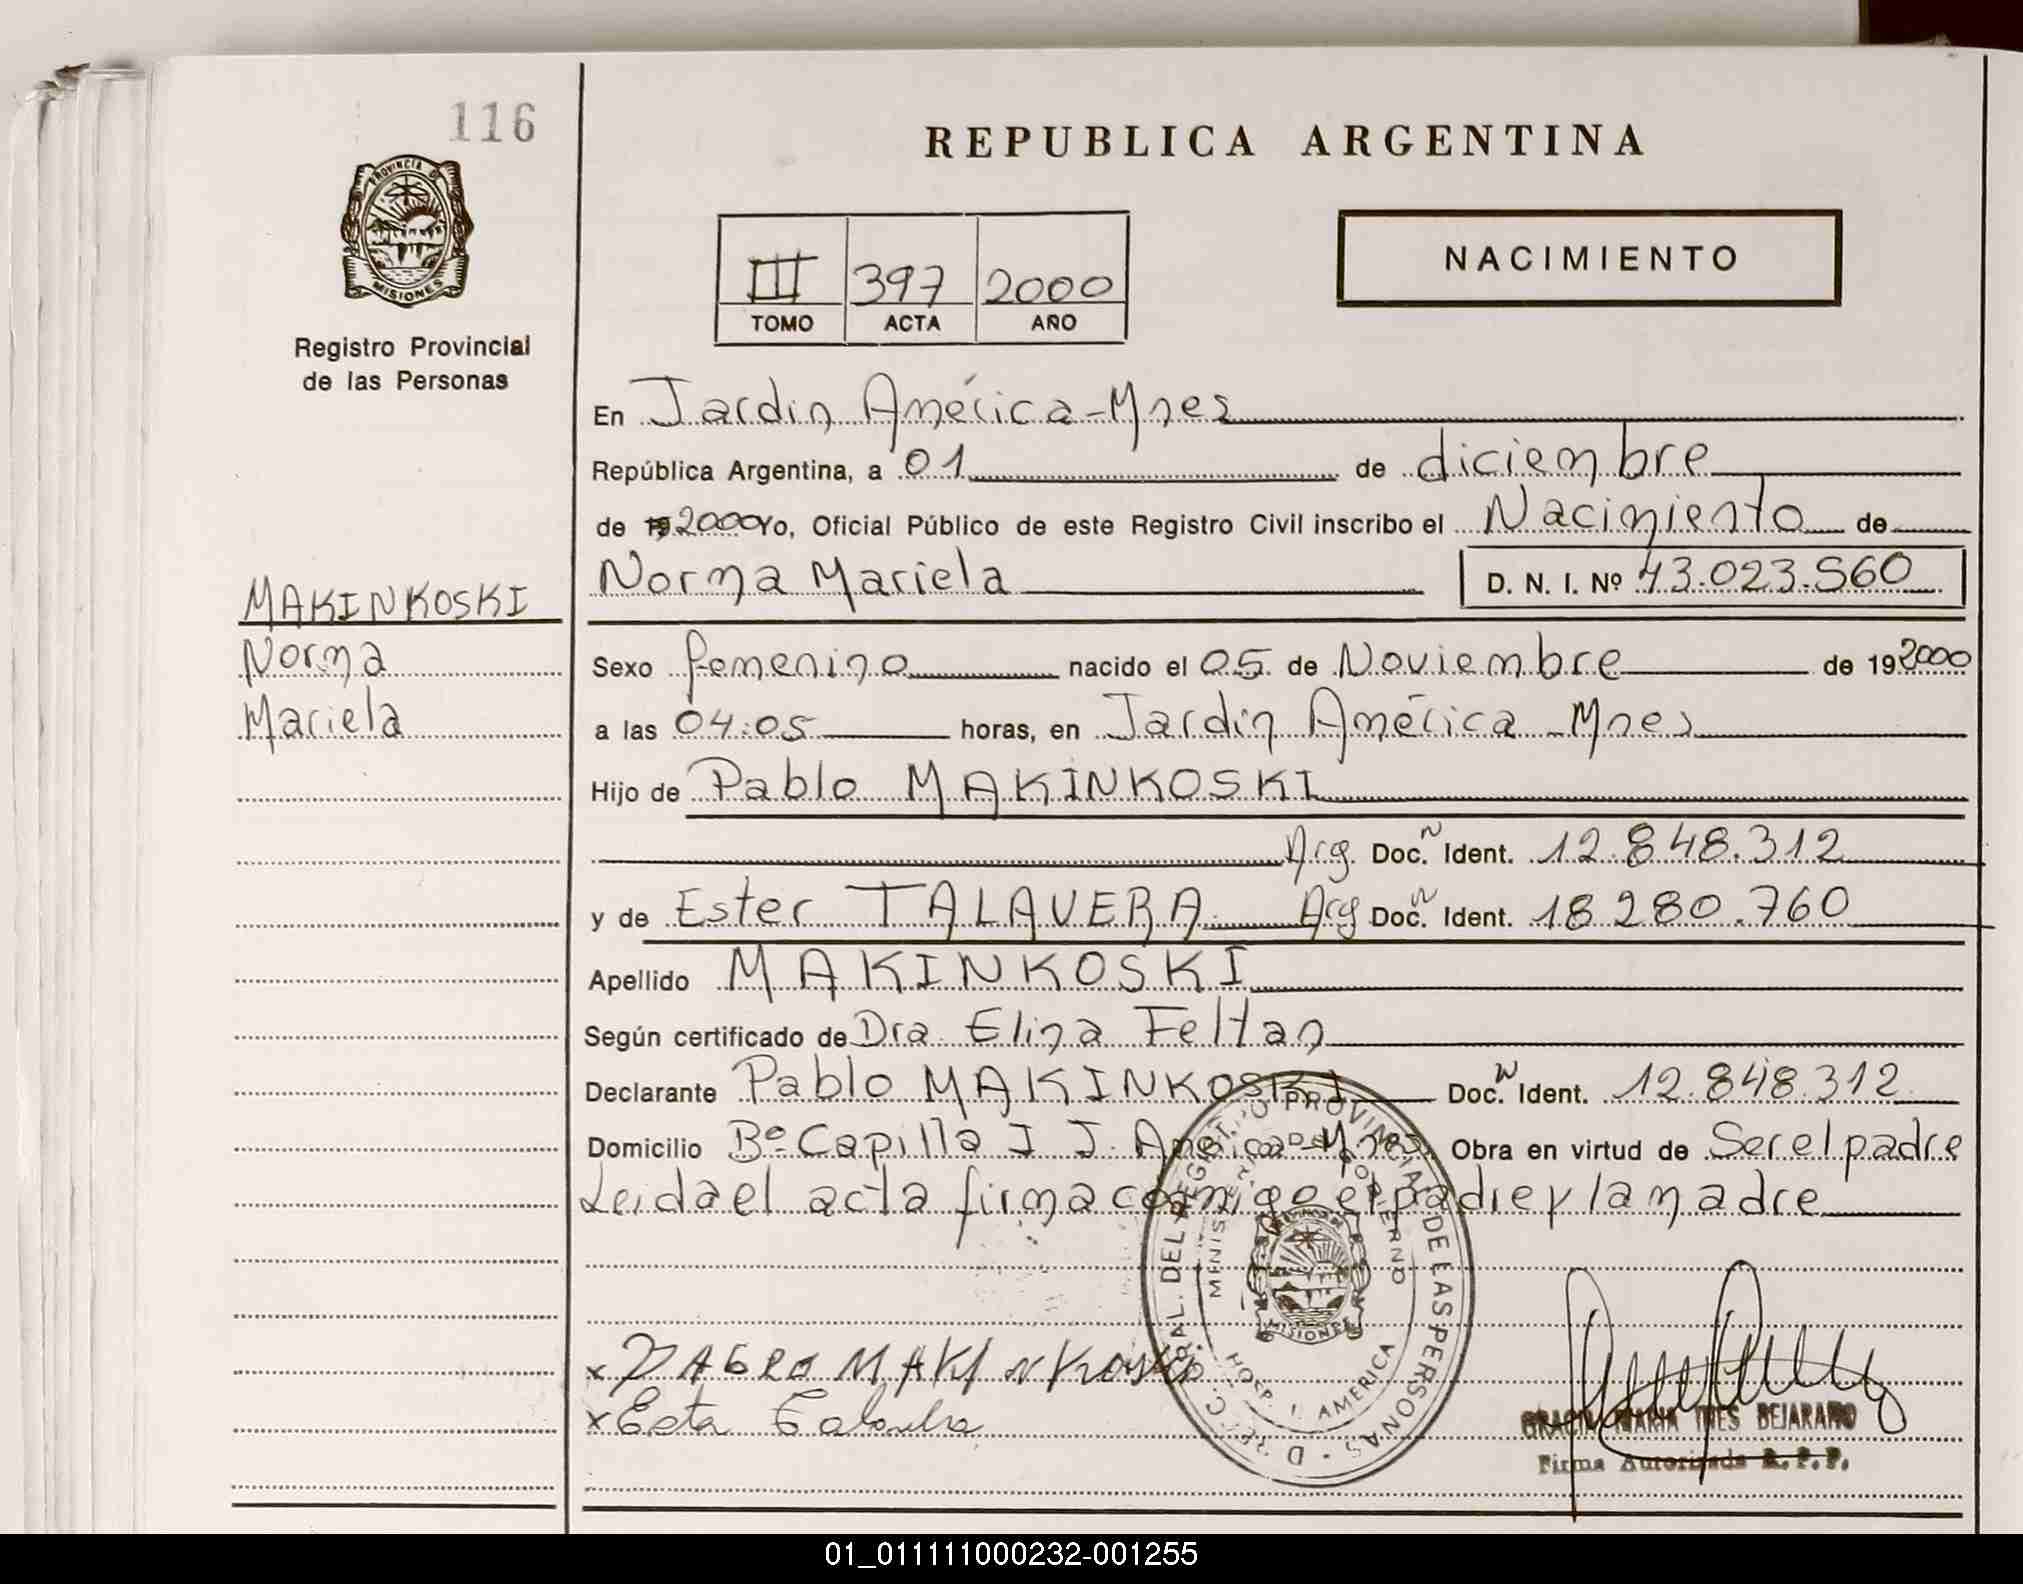 116
REPUBLICA ARGENTINA
PROVINCIA DE
MISIONES
Registro Provincial
de las Personas
III 397 2000
TOMO ACTA AÑO
NACIMIENTO
En Jardin América-Mnes
República Argentina, a 01 de diciembre
de 19 2000 Yo, Oficial Público de este Registro Civil inscribo el Nacimiento de
Norma Mariela D. N. I. Nº 43.023.560
MAKINKOSKI
Norma
Mariela
Sexo femenino nacido el 05 de Noviembre de 19 2000
a las 04:05 horas, en Jardin América-Mnes
Hijo de Pablo MAKINKOSKI
Arg. Doc. Ident. 12.848.312
y de Ester TALAVERA Arg Doc. Ident. 18.280.760
Apellido MAKINKOSKI
Según certificado de Dra. Elina Feltan
Declarante Pablo MAKINKOSKI Doc. Ident. 12.848.312
Domicilio Bº Capilla J. América-Mnes. Obra en virtud de Ser el padre
Leida el acta firma conmigo el padre y la madre
x PABLO MAKINKOSKI
x Ester Talavera
REGISTRO PROVINCIAL DE LAS PERSONAS
MINISTERIO DE GOBIERNO
MISIONES
HOSP. J. AMERICA
GRACIA MARIA INES BEJARANO
Firma Autorizada R. P. P.
01_011111000232-001255